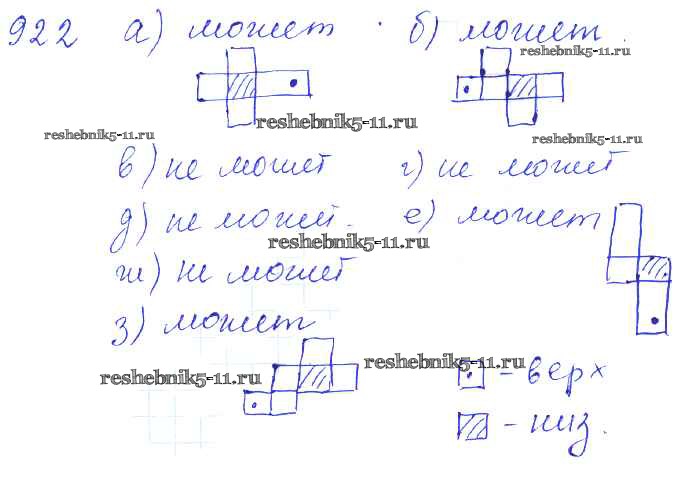 922 а) может б) может.
reshebnik5-11.ru
reshebnik5-11.ru
reshebnik5-11.ru
reshebnik5-11.ru
в) не может г) не может
д) не может. е) может
reshebnik5-11.ru
ж) не может
з) может
reshebnik5-11.ru
reshebnik5-11.ru
- верх
- низ.